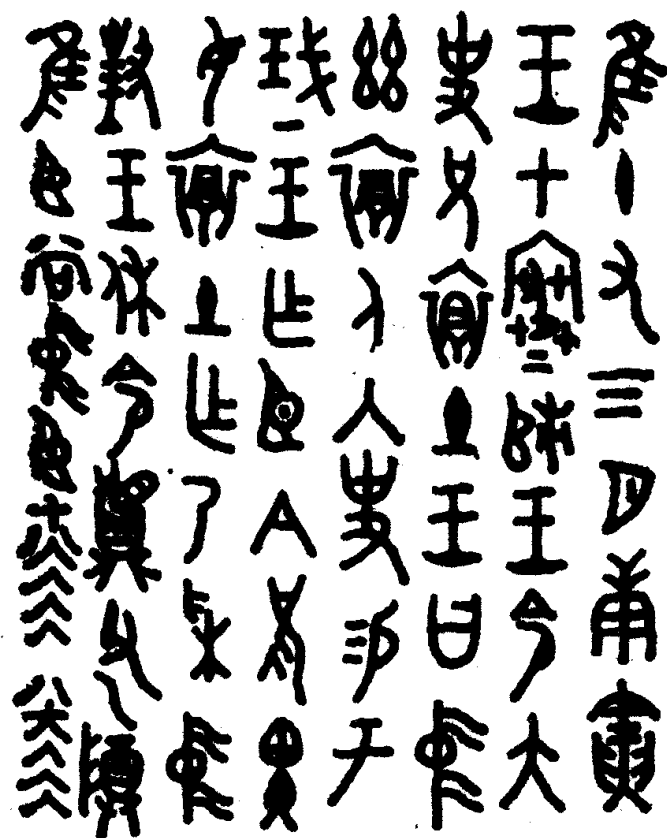 隹十又三月庚寅
王才寒𠂤王令大
史兄𥚃土王曰中
茲𥚃人入史易于
珷王乍臣今兄畀
女𥚃土乍乃采中
對王休令𩰬父乙尊
隹臣尚中臣七八六六六六八七六六六六